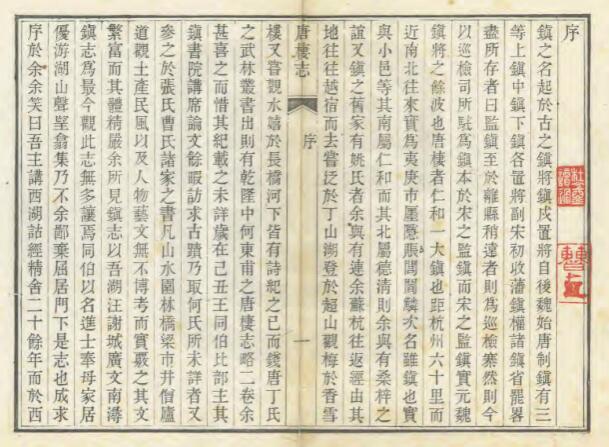 序
鎮之名起於古之鎮將鎮戍置將自後魏始唐制鎮有三
等上鎮中鎮下鎮各置將副宋初收藩鎮權諸鎮省罷畧
盡所存者曰監鎮至於離縣稍遠者則為巡檢寨然則今
以巡檢司所駐為鎮本於宋之監鎮而宋之監鎮實元魏
鎮將之餘波也唐棲者仁和一大鎮也距杭州六十里而
近南北往來實為夷庚市廛慇賑闤闠駢次名雖鎮也實
與小邑等其南屬仁和而其北屬德清則余與有桑梓之
誼又鎮之舊家有姚氏者余與有連余蘇杭往返經由其
地往往越宿而去嘗泛於丁山湖登於超山觀梅於香雪
唐棲志
序
一
樓又嘗觀水嬉於長橋河下皆有詩紀之已而錢唐丁氏
之武林叢書出則有乾隆中何東甫之唐棲志略二卷余
甚喜之而惜其紀載之未詳歲在己丑王同伯比部主其
鎮書院講席論文餘暇訪求古蹟乃取何氏所未詳者又
參之於張氏曹氏諸家之書凡山水園林橋梁市井僧廬
道觀土產民風以及人物藝文無不博考而實覈之其文
繁富而其體精嚴余所見鎮志以吾湖汪謝城廣文南潯
鎮志為最今觀此志無多讓焉同伯以名進士奉母家居
優游湖山聲望翕集乃不余鄙棄屈居門下是志也成求
序於余余笑曰吾主講西湖詁經精舍二十餘年而於西